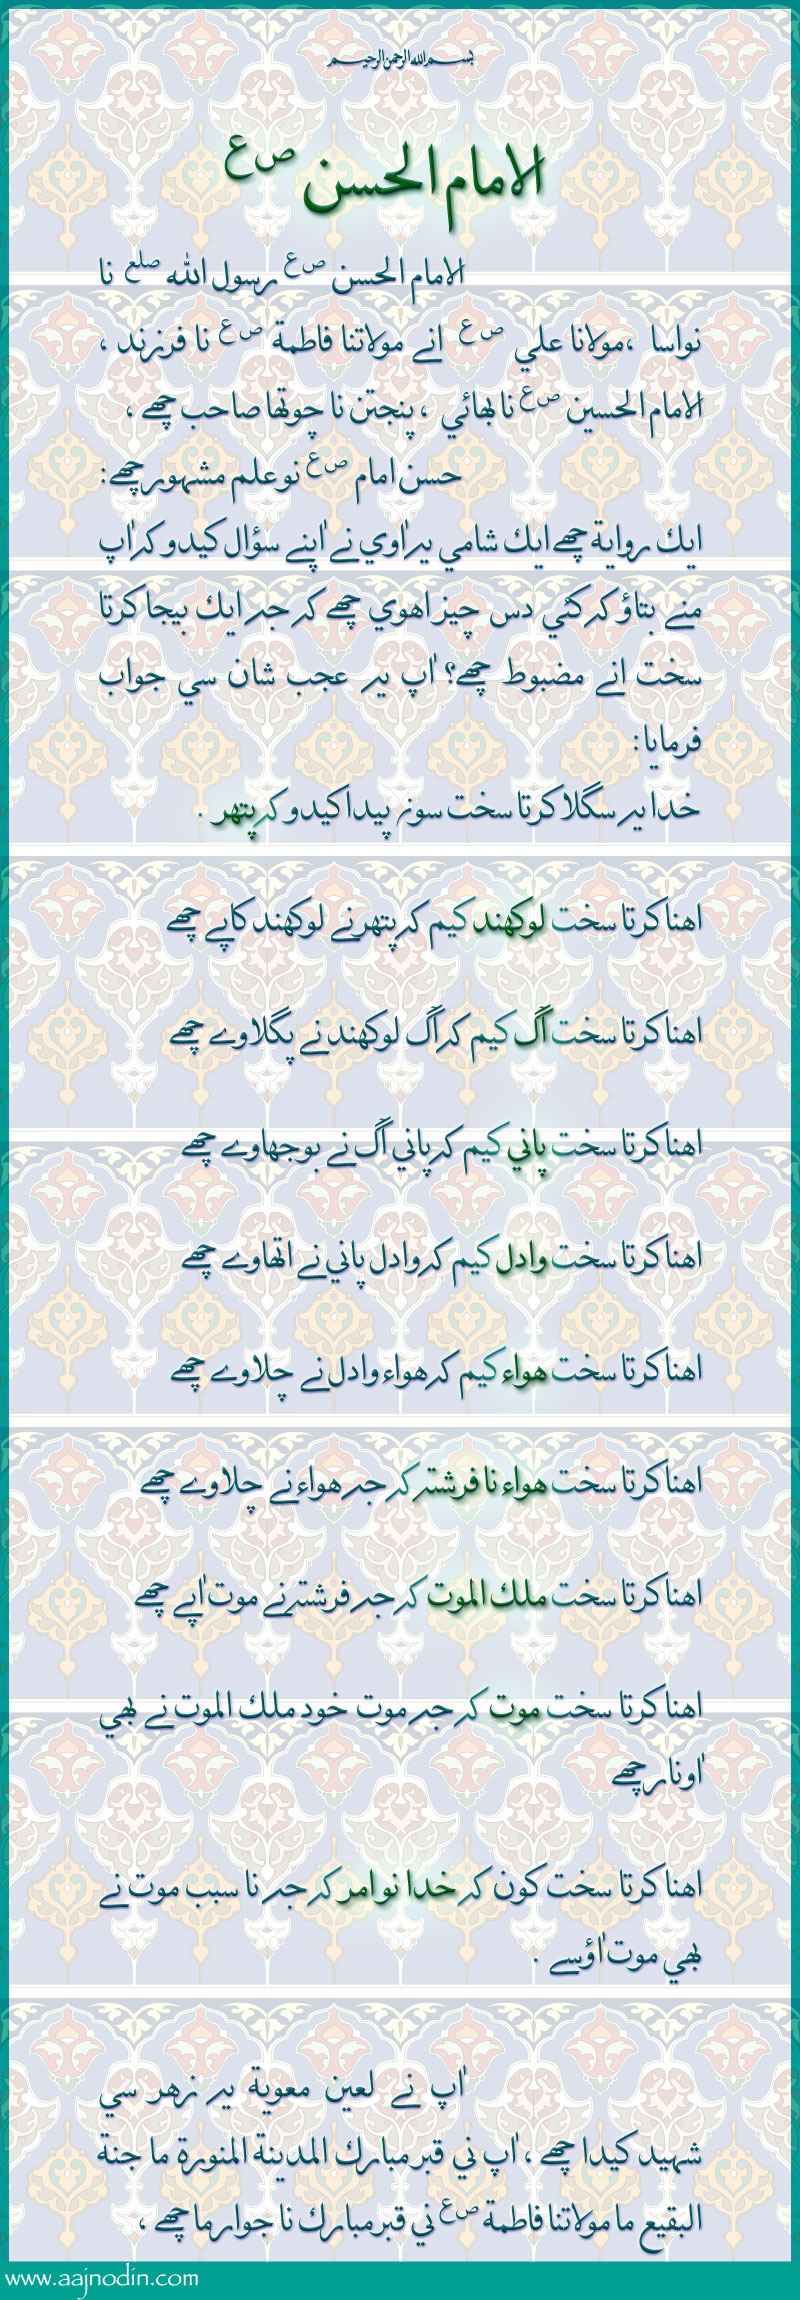 بسم الله الرحمن الرحيم
الامام الحسن ص ع
الامام الحسن ص ع رسول الله صلع نا
نواسا ،مولانا علي ص ع انے مولاتنا فاطمة ص ع نا فرزند ،
الامام الحسين ص ع نا بھائي ، پنجتن نا چوتھا صاحب چھے ،
حسن امام ص ع نو علم مشهور چھے:
ايك رواية چھے ايك شامي يہ راوي نے اٰپنے سؤال كيدو كہ اٰپ
منے بتاؤ كہ كئي دس چيز اهوي چھے كہ جہ ايك بيجا كرتا
سخت انے مضبوط چھے؟ اٰپ يہ عجب شان سي جواب
فرمايا:
خدا يہ سگلا كرتا سخت سونہ پيدا كيدو كہ پتھر .
اهنا كرتا سخت لوكھند كيم كہ پتھر نے لوكھند كاپے چھے
اهنا كرتا سخت آگ كيم كہ آگ لوكھند نے پگلاوے چھے
اهنا كرتا سخت پاني كيم كہ پاني آگ نے بوجھاوے چھے
اهنا كرتا سخت وادل كيم كہ وادل پاني نے اتھاوے چھے
اهنا كرتا سخت هواء كيم كہ هواء وادل نے چلاوے چھے
اهنا كرتا سخت هواء نا فرشتہ كہ جہ هواء نے چلاوے چھے
اهنا كرتا سخت ملك الموت كہ جہ فرشتہ نے موت اٰپے چھے
اهنا كرتا سخت موت كہ جہ موت خود ملك الموت نے بھي
اٰونار چھے
اهنا كرتا سخت كون كہ خدا نو امر كہ جہ نا سبب موت نے
بھي موت اٰؤسے .
اٰپ نے لعين معوية يہ زهر سي
شهيد كيدا چھے ، اٰپ ني قبر مبارك المدينة المنورة ما جنة
البقيع ما مولاتنا فاطمة ص ع ني قبر مبارك نا جوار ما چھے ،
www.aajnodin.com